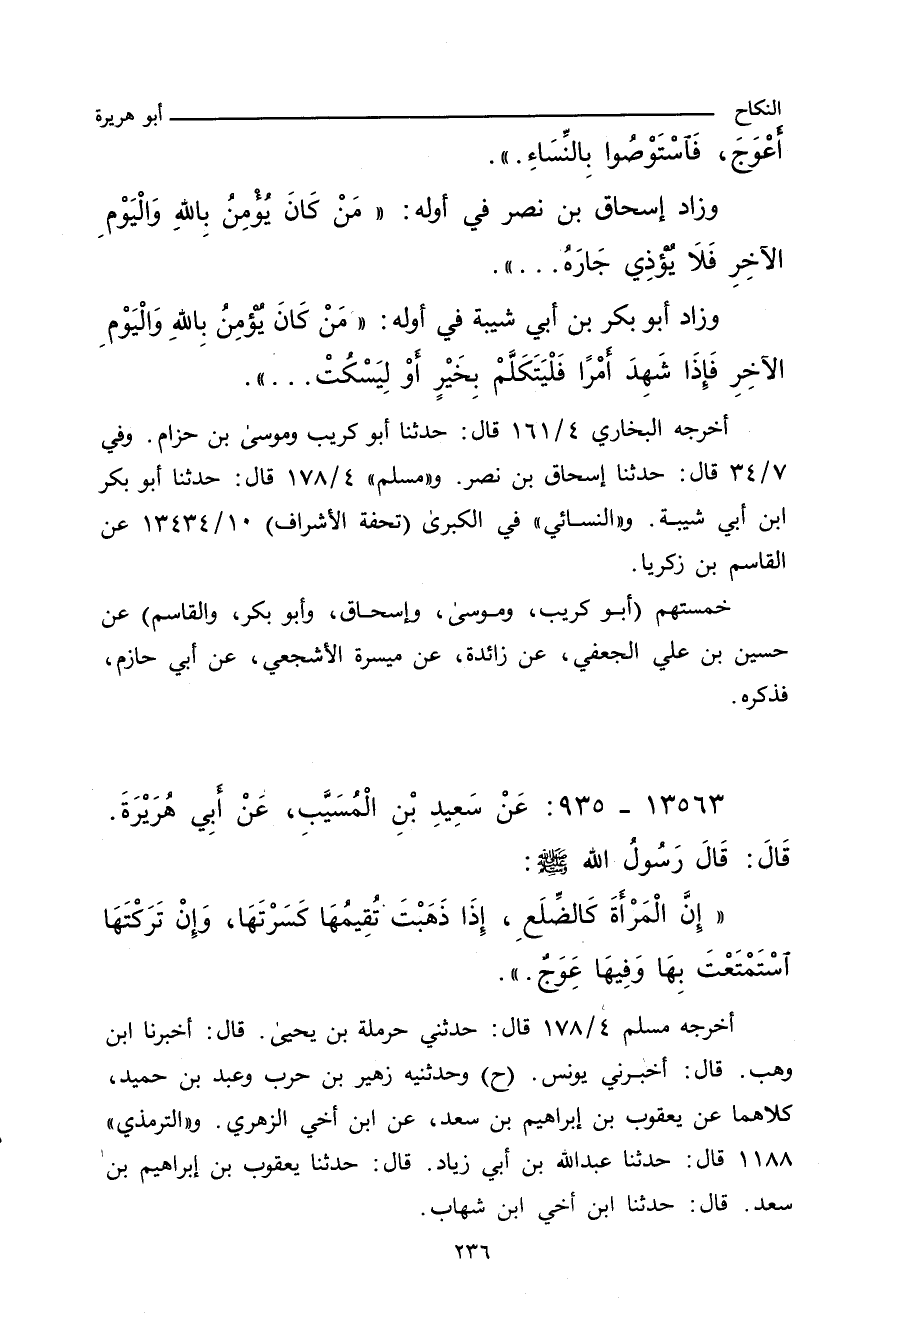 النكاح ــــــــــــــــــــ أبو هريرة
أَعْوَجَ، فَٱسْتَوْصُوا بِالنِّسَاءِ.».
وزاد إسحاق بن نصر في أوله: « مَنْ كَانَ يُؤْمِنُ بِاللهِ وَالْيَوْمِ
الآخِرِ فَلَا يُؤْذِي جَارَهُ...».
وزاد أبو بكر بن أبي شيبة في أوله: « مَنْ كَانَ يُؤْمِنُ بِاللهِ وَالْيَوْمِ
الآخِرِ فَإِذَا شَهِدَ أَمْرًا فَلْيَتَكَلَّمْ بِخَيْرٍ أَوْ لِيَسْكُتْ...».
أخرجه البخاري ١٦١/٤ قال: حدثنا أبو كريب وموسىٰ بن حزام. وفي
٣٤/٧ قال: حدثنا إسحاق بن نصر. و«مسلم» ١٧٨/٤ قال: حدثنا أبو بكر
ابن أبي شيبة. و«النسائي» في الكبرىٰ (تحفة الأشراف) ١٣٤٣٤/١٠ عن
القاسم بن زكريا.
خمستهم (أبو كريب، وموسىٰ، وإسحاق، وأبو بكر، والقاسم) عن
حسين بن علي الجعفي، عن زائدة، عن ميسرة الأشجعي، عن أبي حازم،
فذكره.
١٣٥٦٣ - ٩٣٥: عَنْ سَعِيدِ بْنِ الْمُسَيَّبِ، عَنْ أَبِي هُرَيْرَةَ.
قَالَ: قَالَ رَسُولُ الله ﷺ:
« إِنَّ الْمَرْأَةَ كَالضِّلَعِ، إِذَا ذَهَبْتَ تُقِيمُهَا كَسَرْتَهَا، وَإِنْ تَرَكْتَهَا
ٱسْتَمْتَعْتَ بِهَا وَفِيهَا عَوَجٌ.».
أخرجه مسلم ١٧٨/٤ قال: حدثني حرملة بن يحيىٰ. قال: أخبرنا ابن
وهب. قال: أخبرني يونس. (ح) وحدثنيه زهير بن حرب وعبد بن حميد،
كلاهما عن يعقوب بن إبراهيم بن سعد، عن ابن أخي الزهري. و«الترمذي»
١١٨٨ قال: حدثنا عبدالله بن أبي زياد. قال: حدثنا يعقوب بن إبراهيم بن
سعد. قال: حدثنا ابن أخي ابن شهاب.
٢٣٦